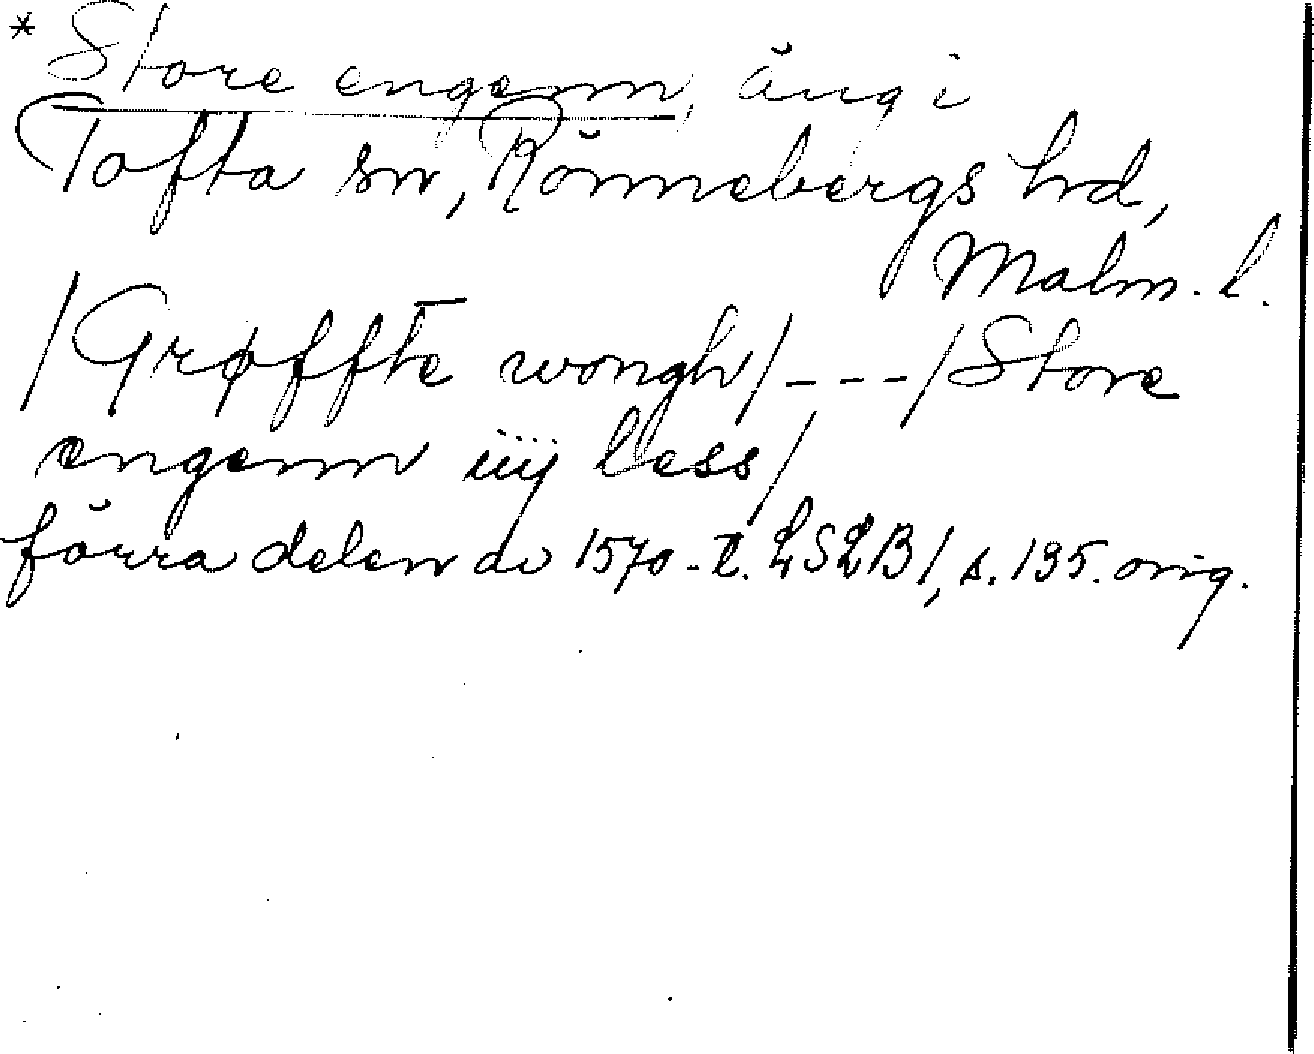 * Store engenn, äng i
Tofta sn, Rönnebergs hd,
Malm. l.
/Grøffte wongh/---/Store
engenn iiij less/
förra delen av 1570-t. LSLB1, s. 135. orig.